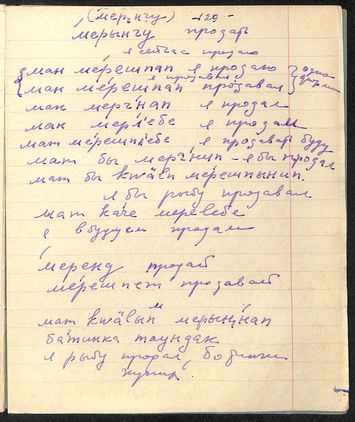 (мерынчу) -120-
мерынгу продать
я сейчас продаю
ман мерешпап я продаю } одна
я продавал
ман мерешпап продавал форма
мак мерчнап я продал
ман мерлебе я продам
мат мерешпебе я продавать буду
мат бы мерчнип - я бы продал
мат бы кwäлп мерешпынип.
я бы рыбу продавал
мат каче мерлебе
я в будущем продам
меренд продаст
мерешпет продавает
мат кwäлып мерыннап
батинка таундак
я рыбу продал, ботинки
купил.